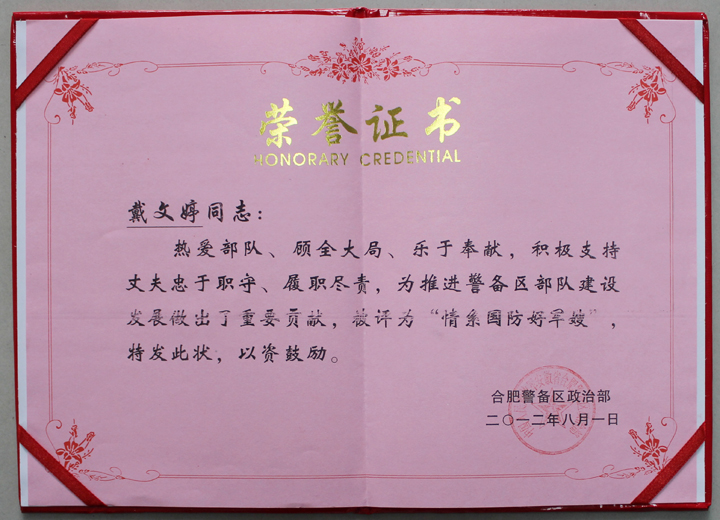 荣誉证书
HONORARY CREDENTIAL
戴文婷同志：
热爱部队、顾全大局、乐于奉献，积极支持
丈夫忠于职守、履职尽责，为推进警备区部队建设
发展做出了重要贡献，被评为“情系国防好军嫂”，
特发此状，以资鼓励。
合肥警备区政治部
二〇一二年八月一日